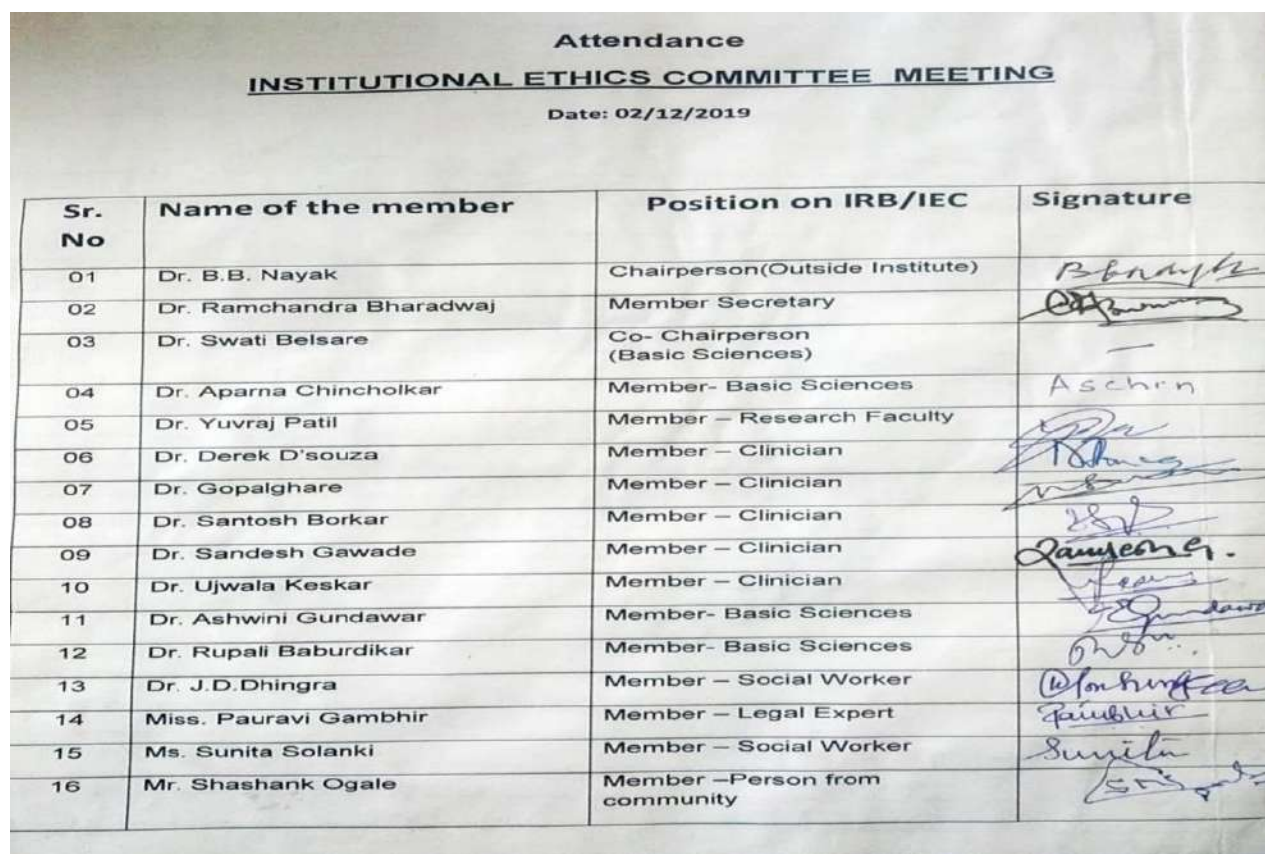 Attendance
INSTITUTIONAL ETHICS COMMITTEE MEETING
Date: 02/12/2019
Sr. No Name of the member Position on IRB/IEC Signature
01 Dr. B.B. Nayak Chairperson(Outside Institute)
02 Dr. Ramchandra Bharadwaj Member Secretary
03 Dr. Swati Belsare Co- Chairperson
(Basic Sciences) —
04 Dr. Aparna Chincholkar Member- Basic Sciences Aschin
05 Dr. Yuvraj Patil Member – Research Faculty
06 Dr. Derek D'souza Member – Clinician
07 Dr. Gopalghare Member – Clinician
08 Dr. Santosh Borkar Member – Clinician
09 Dr. Sandesh Gawade Member – Clinician
10 Dr. Ujwala Keskar Member – Clinician
11 Dr. Ashwini Gundawar Member- Basic Sciences
12 Dr. Rupali Baburdikar Member- Basic Sciences
13 Dr. J.D.Dhingra Member – Social Worker
14 Miss. Pauravi Gambhir Member – Legal Expert Gambhir
15 Ms. Sunita Solanki Member – Social Worker Sunita
16 Mr. Shashank Ogale Member –Person from
community